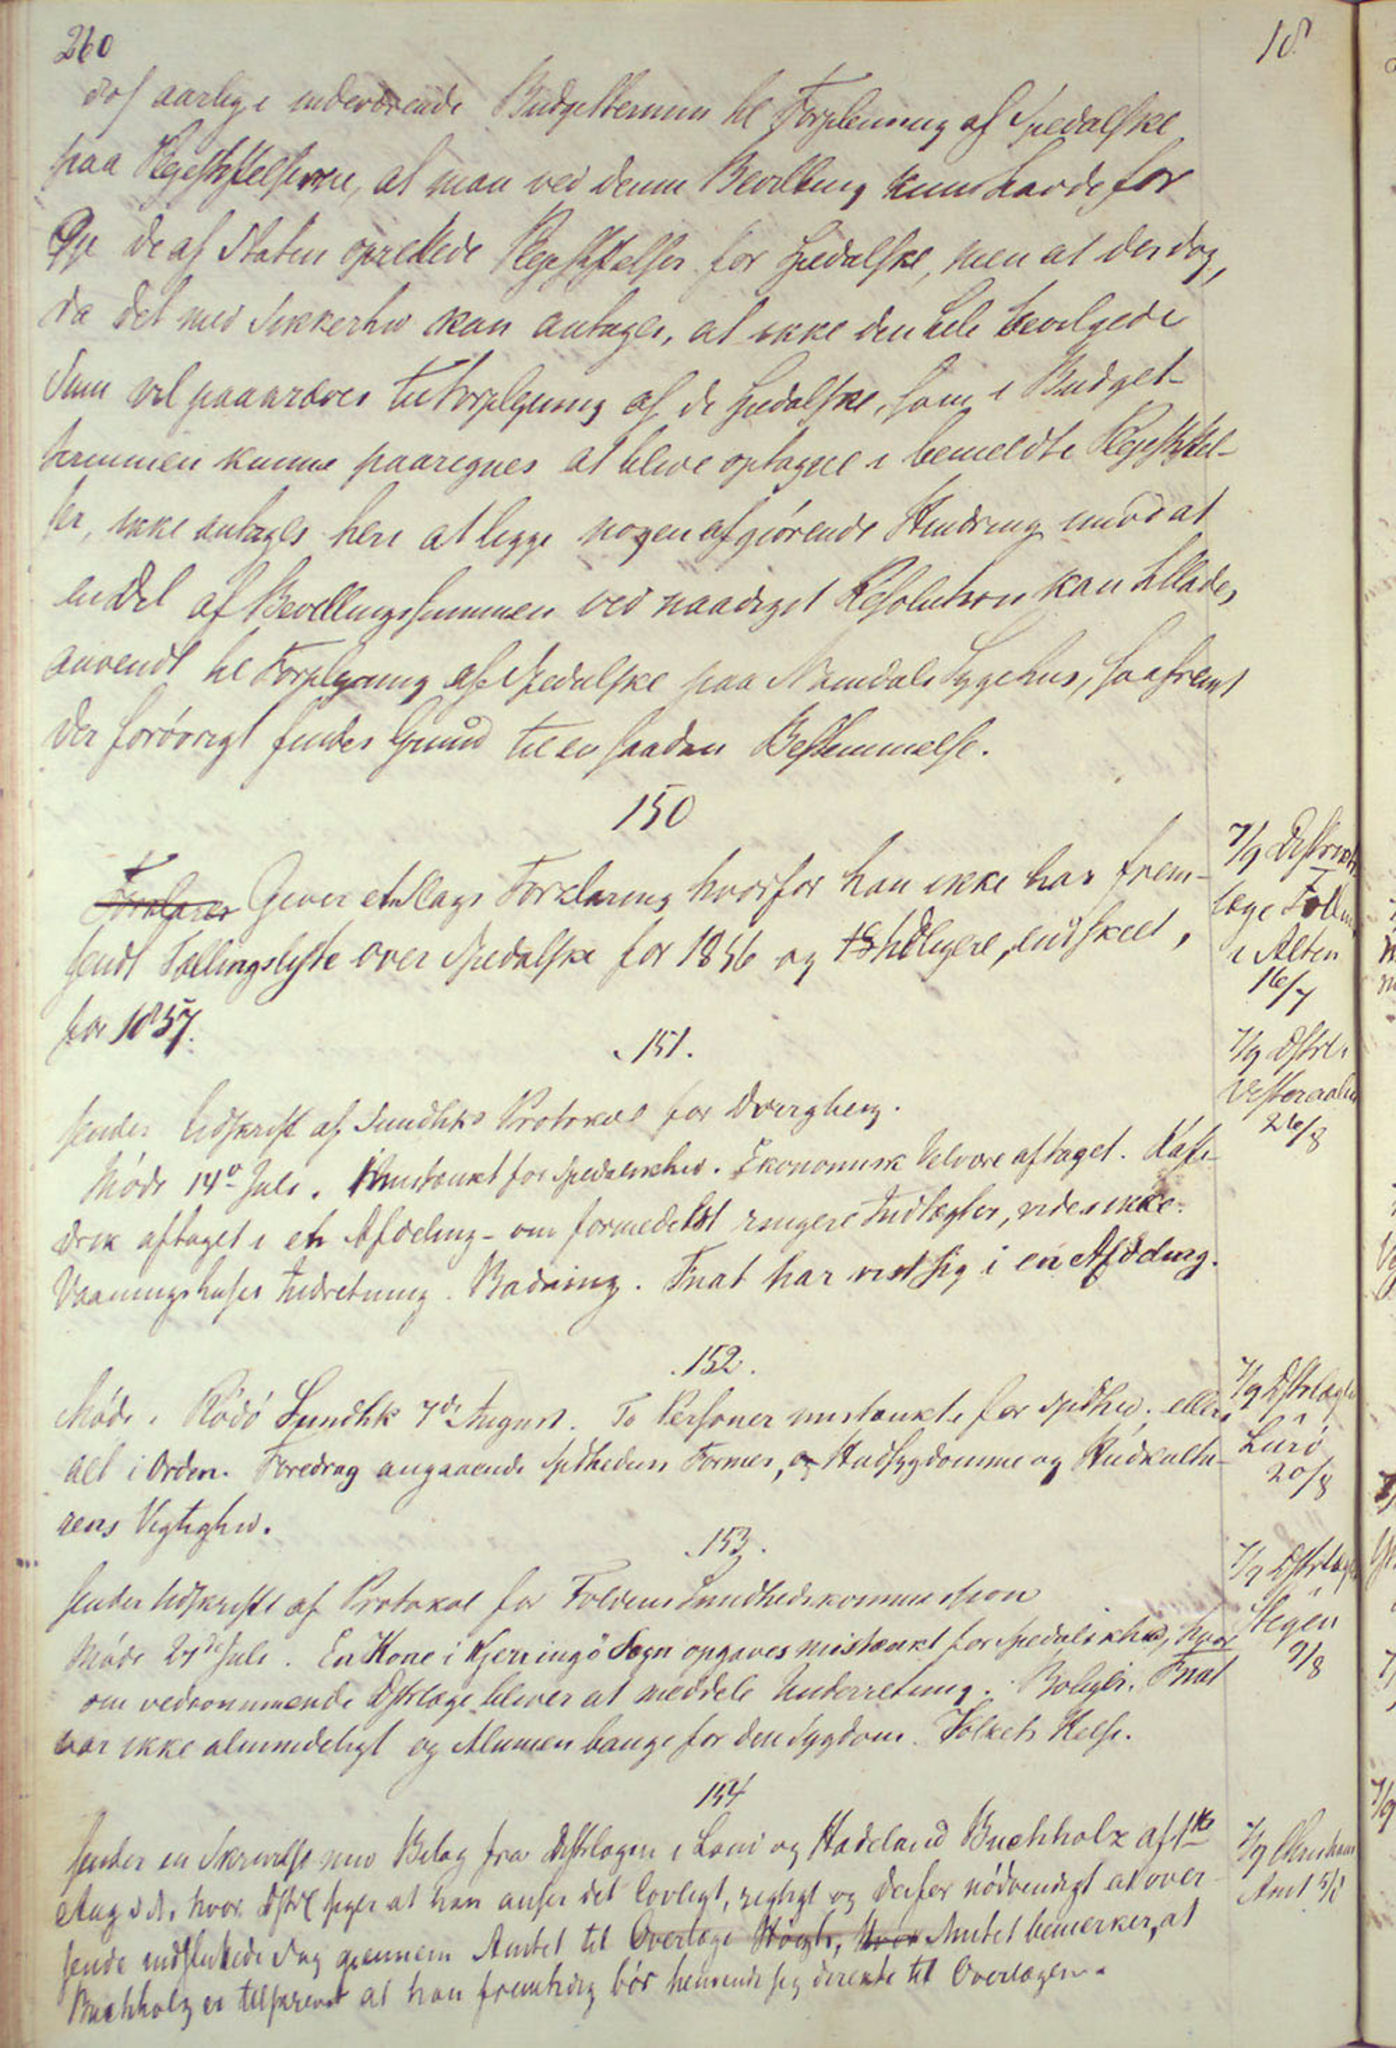 260
18
aarlig i indeværende Budgettermin til Forpleining af Spedalske
paa Pleiestiftelserne, at man ved denne Bevilling kun havde for
Øje de af Staten oprettede Pleiestiftelser for Spedalske, men at der dog,
da det med Sikkerhed kan antages, at ikke den hele bevilgede
Sum vil paakræves til Forpleining af de Spedalske, som i Budget-
terminen kunne paaregnes at blive optagne i bemeldte Pleiestiftel-
ser, ikke antages heri at ligge nogen afgjørende Hindring imod at
en Del af Bevillingssummen ved naadigst Resolution kan tillades
anvendt til Forpleining af Spedalske paa Namdals Sygehus, saafremt
der forøvrigt findes Grund til en saadan Bestemmelse.
150
Forklarer Giver et Slags Forklaring hvorfor han ikke har frem-
sendt Tællingsliste over Spedalske for 1856 og tidligere, indskeet,
for 1857.
7/9 Distrikts
læge
i Alten
16/7
151.
Sender Udskrift af Sundhks Protokol for Dverberg.
Møde 14de Juli. Mistænkt for Spedalskhed. Økonomisk Velvære aftaget. Kaffe-
drik aftaget i en Afdeling - om formedelst ringere Indtægter, vides ikke.
Vaaningshuses Indretning. Badning. Fnat har vist sig i en Afdeling.
7/9 Dstrl.
Vesteraalen
26/8
152.
Møde i Rødø Sundhk 7de August. To Personer mistænkte for Spdhed. ellers
alt i Orden. Foredrag angaaende Spdhedens Former, og Hudsygdomme og Hudkultu-
rens Vigtighed.
7/9 Dstrlæge
i
Lurø
20/8
153.
Sender Udskrift af Protokol for Foldens Sundhedskommission
Møde 27de Juli. En Kone i Kjerringø Sogn opgaves mistænkt for Spedalskhed, hvor
om vedkommende Dstrlæge bliver at meddele Underretning. Boliger. Fnat
var ikke almindeligt og Almuen bange for den Sygdom. Folkets Helse.
7/9 Dstrlæge
i
Stegen
9/8
154
Sender en Skrivelse med Bilag fra Dstrlægen i Land og Hadeland Buchholz af 1ste
Aug d. A. hvor Dstrl siger at han anser det lovligt, rigtigt og derfor nødvendigt at over-
sende indsluttede Sag gjennem Amtet til Overlæge Høegh, hvor Amtet bemærker, at
Buchholz er tilskrevet at han fremtidig bør henvende sig direkte til Overlægen.
7/9 Christians
Amt